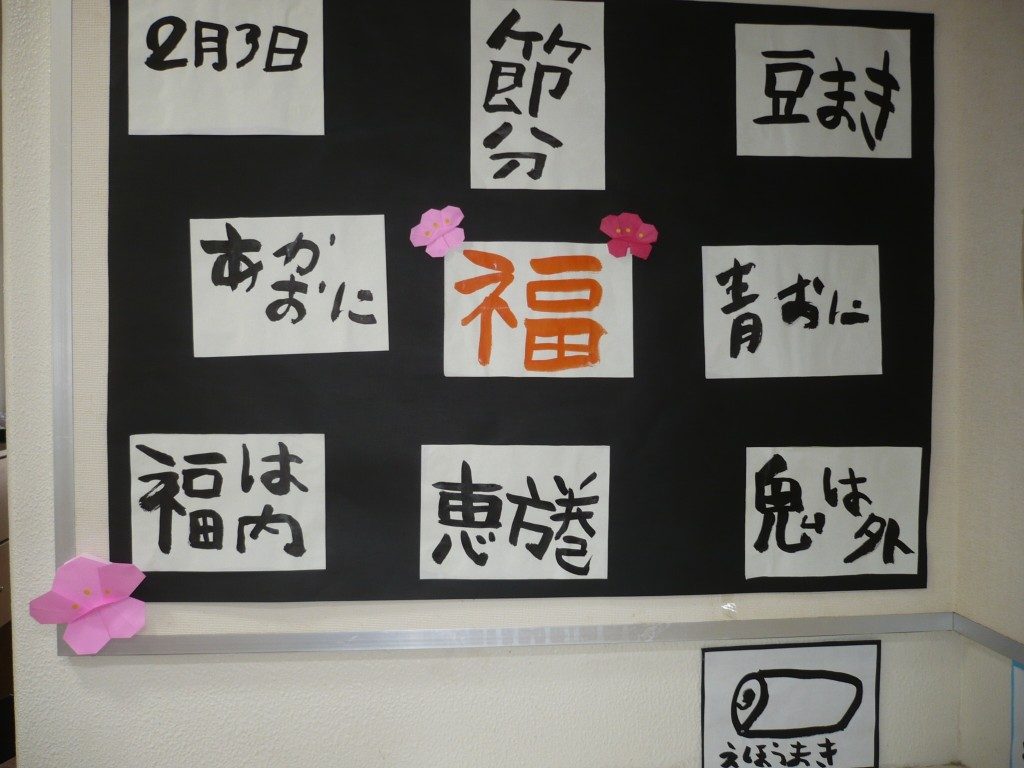 2月3日
節
分
豆まき
あか
おに
福
青おに
福は
内
恵方巻
鬼は
外
えほうまき